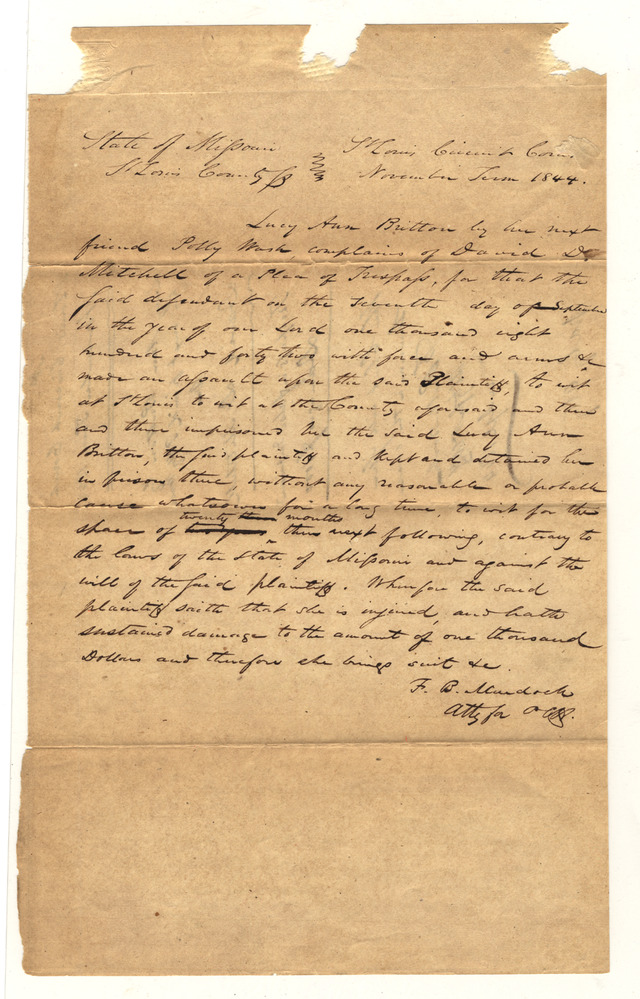 State of Missouri St Louis Circuit Court
St Louis County ss November Term 1844.
Lucy Ann Britton by her next
friend Polly Wash complains of David D
Mitchell of a Plea of Trespass, for that the
said defendant on the seventh day of September
in the year of our Lord one thousand eight
hundred and forty two with force and arms &c
made an assault upon the said Plaintiff, to wit
at St Louis to wit at the County aforesaid and then
and there imprisoned her the said Lucy Ann
Britton, the said plaintiff and kept and detained her
in prison there, without any reasonable or probable
cause whatsoever for a long time, to wit for the
twenty months
space of then next following, contrary to
the laws of the State of Missouri and against the
will of the said plaintiff. Wherefore the said
plaintiff saith that she is injured, and hath
sustained damage to the amount of one thousand
Dollars and therefore she brings suit &c.
F. B. Murdoch
Atty for Plff.